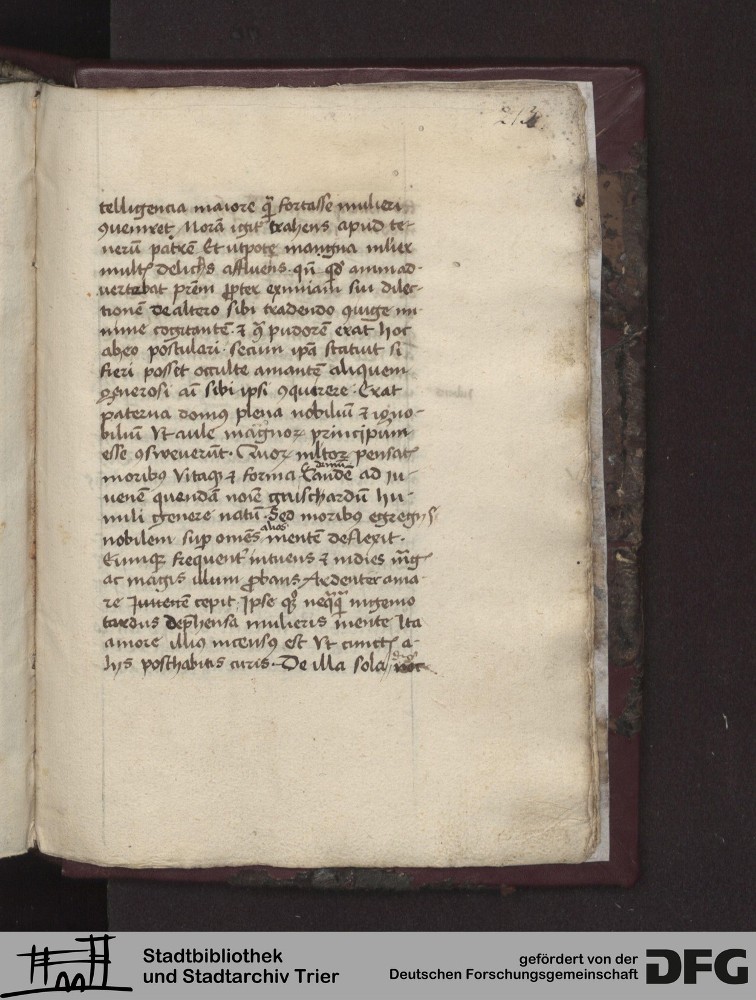 213
telligencia maiore quã fortasse mulieri
ꝯuenret Morã igitʳ trahens apud te-
nerũ patrẽ Et utpote mangna mlier
multꝭ delicijs affluens. qñ qͦd animad-
vertebat prẽm ꝓpter eximiam sui dilec-
tionẽ de altero sibi tradendo ꝯiuge mi-
nime cogitantẽ. ⁊ ꝯͣ pudorẽ erat hoc
ab eo postulari. secum ipã statuit si
fieri posset occulte amantẽ aliquem
generosi aĩ sibi ipsi ꝯquirere. Erat
paterna domꝰ plena nobiliũ ⁊ igno-
biliũ Vt aule magnoꝝ principum
esse ꝯsweuerũt. Quoꝝ mltoꝝ pensatꝭ
moribꝰ Vitaqꝫ ⁊ forma Tandẽ demũ ad iu-
venẽ quendã noĩe guischardũ hu-
mili genere natũ. Sed moribꝰ egregijs
nobilem suꝑ omẽs alios mentẽ deflexit.
Eumqꝫ frequentʳ intuens ⁊ indies mãg
ac magis illum ꝓbans Ardenter ama-
re Juuenẽ cepit. Ipse qͦꝫ neqͣqͣ ingenio
tardus depͬhensa mulieris mente Ita
amore illiꝰ incensꝰ est Vt cunctꝭ a-
lijs posthabitis curis. De illa sola
Stadtbibliothek
und Stadtarchiv Trier
gefördert von der
Deutschen Forschungsgemeinschaft
DFG